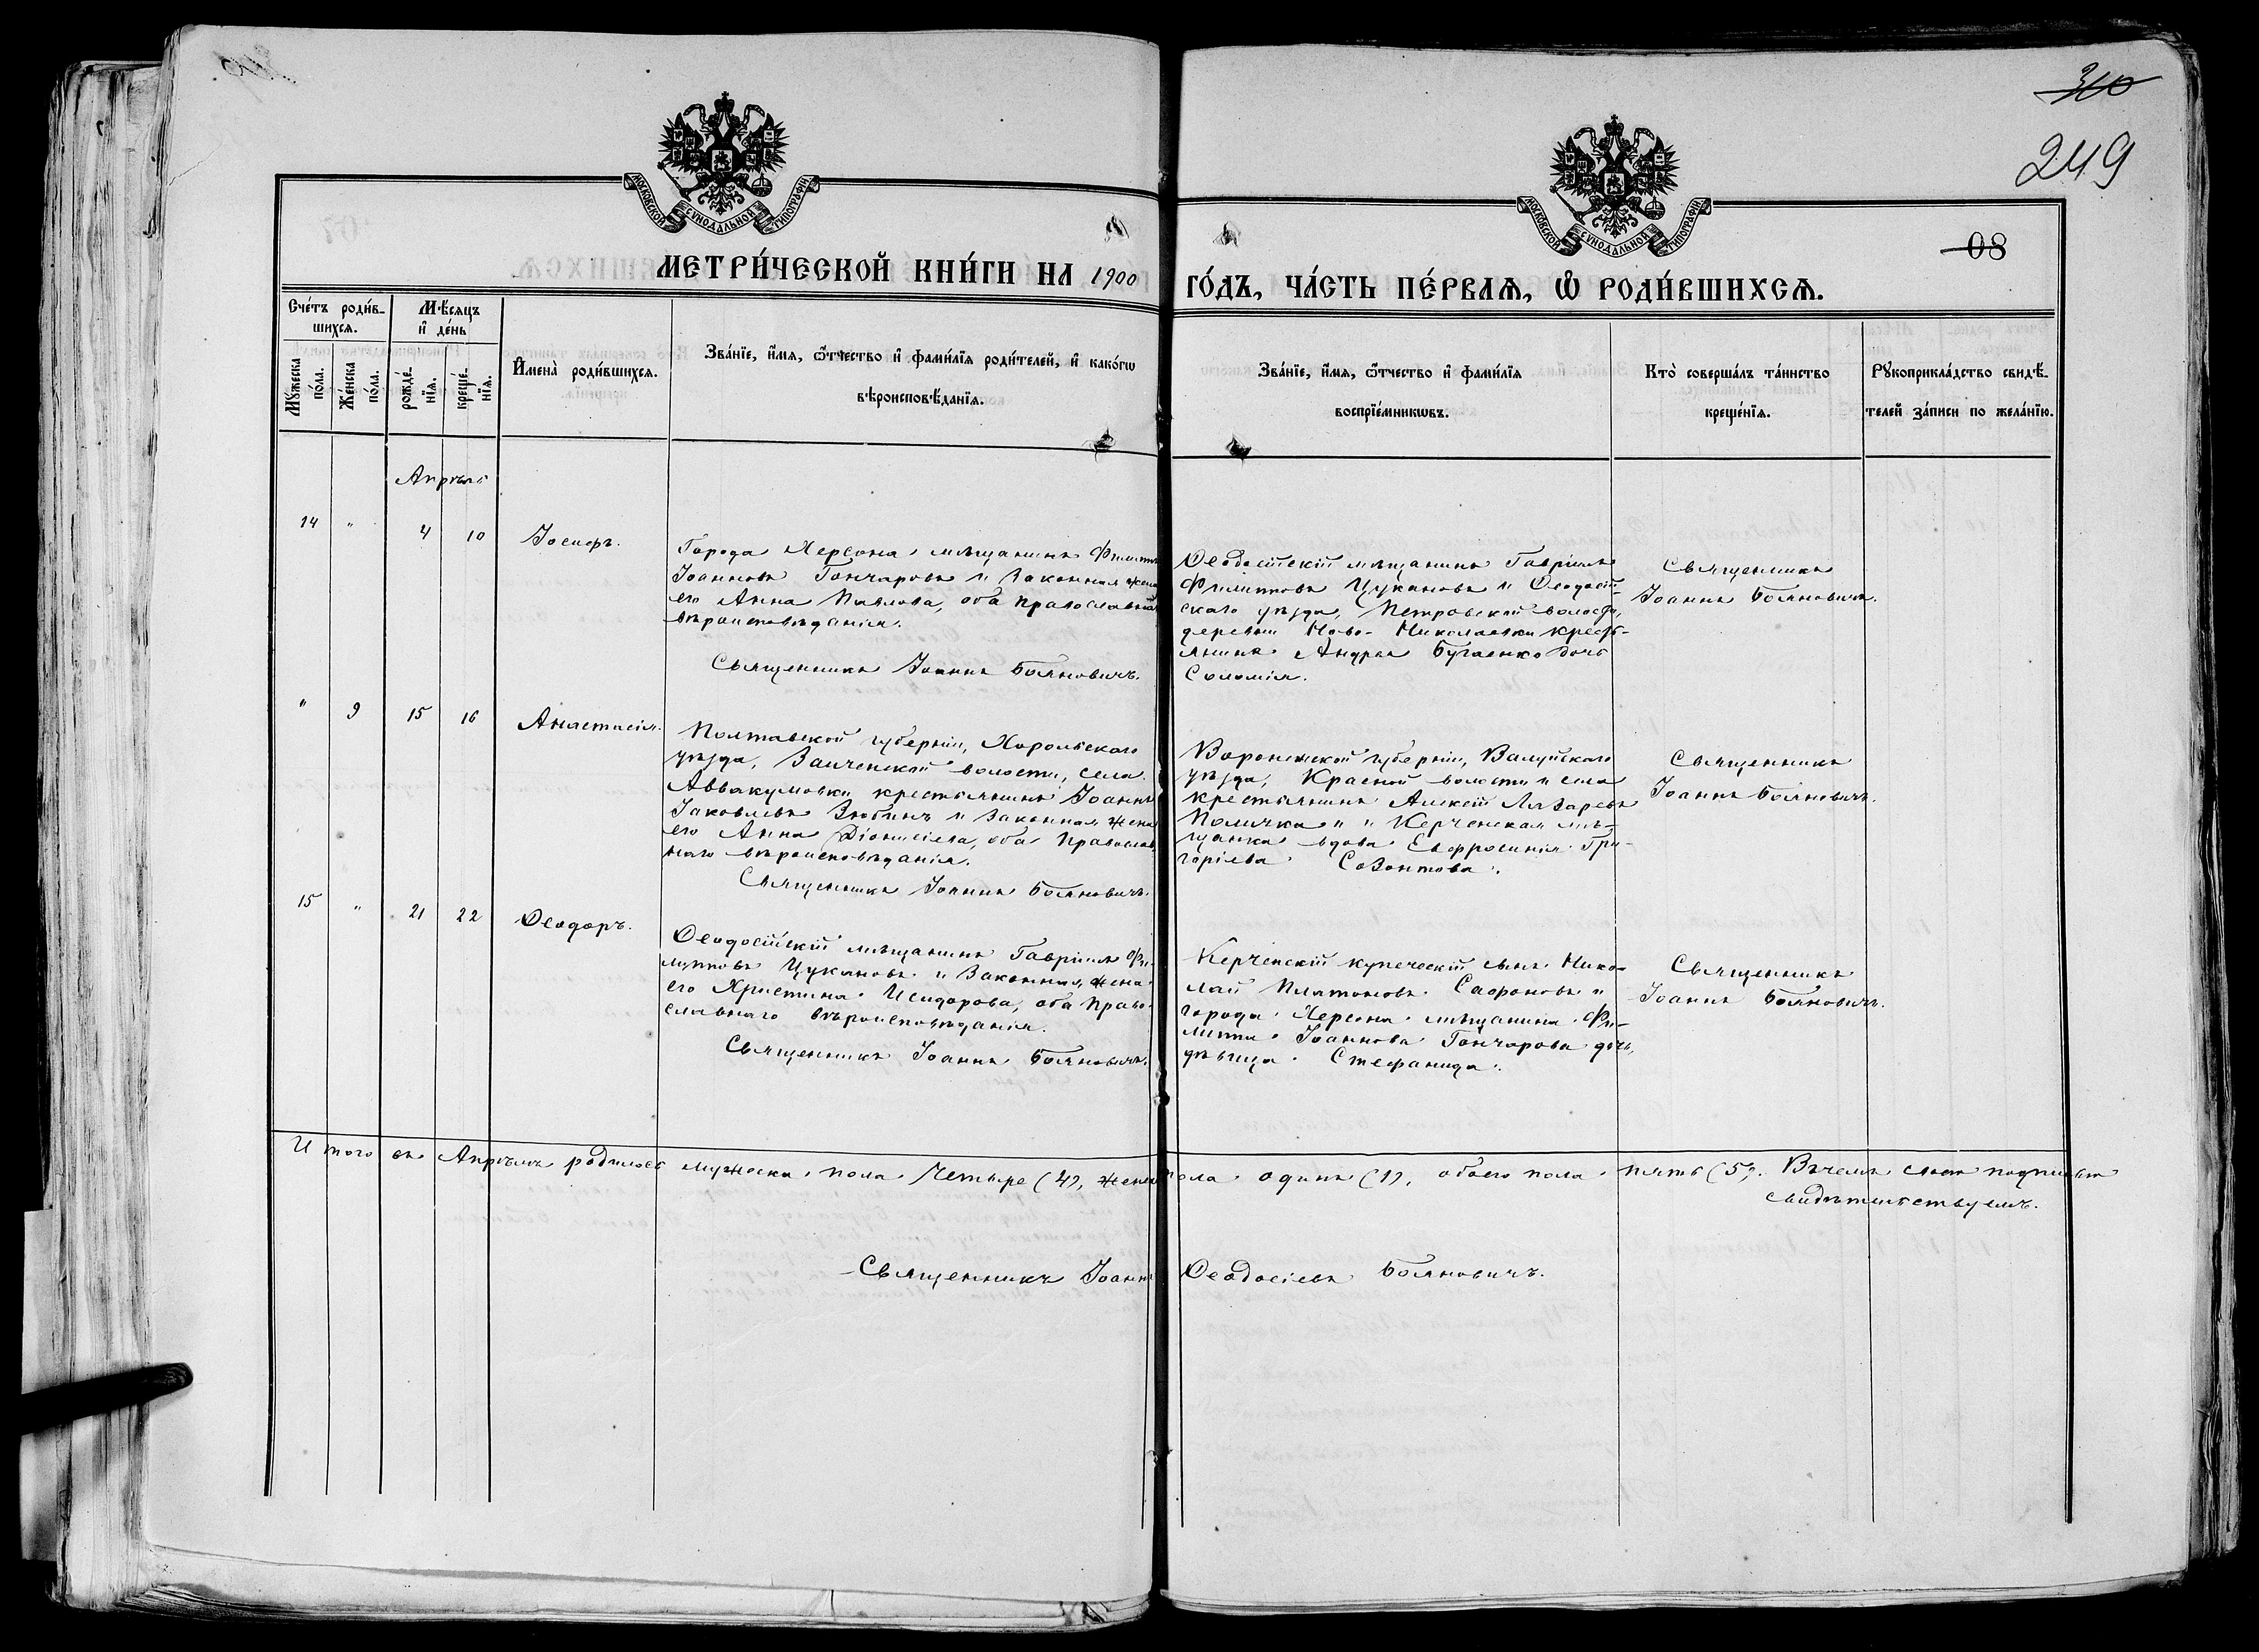 310
249
МОСКОВСКОЙ СУНОДАЛЬНОЙ ТИПОГРАФІИ
МОСКОВСКОЙ СУНОДАЛЬНОЙ ТИПОГРАФІИ
08
МЕТРИ́ЧЕСКОЙ КНИ́ГИ НА 1900 ГО́ДЪ, ЧА́СТЬ ПЕ́РВАѦ, Ѡ РОДИ́ВШИХСѦ.
Сче́тъ роди́в-
шихсѧ.
Мꙋ́жеска
по́ла.
Же́нска
по́ла.
Мѣ́сѧцъ
и҆ де́нь
рожде́-
нїѧ.
креще́-
нїѧ.
И҆мена̀ роди́вшихсѧ.
Зва́нїе, и҆́мѧ, ѻ҆́тчество и҆ фами́лїѧ роди́телей, и҆ како́гѡ
вѣроисповѣ́данїѧ.
Зва́нїе, и҆́мѧ, ѻ҆́тчество и҆ фами́лїѧ
воспрїе́мникѡвъ.
Кто̀ соверша́лъ та́инство
креще́нїѧ.
Рꙋкоприкла́дство свидѣ́-
телей за́писи по жела́нїю.
Апрѣль
14 " 4 10 Іосифъ.
Города Херсона мѣщанинъ Филиппъ
Іоанновъ Гончаровъ и законная жена
его Анна Павлова, оба православнаго
вѣроисповѣданія.
Священникъ Іоаннъ Бояновичъ.
Ѳеодосійскій мѣщанинъ Гавріилъ
Филипповъ Цукановъ и Ѳеодосій-
скаго уѣзда, Петровской волости,
деревни Ново-Николаевки кресть-
янина Андрея Бугаенко дочь
Соломія.
Священникъ
Іоаннъ Бояновичъ.
" 9 15 16 Анастасія.
Полтавской губерніи, Хорольскаго
уѣзда, Заиченской волости, села
Аввакумовки крестьянинъ Іоаннъ
Іаковлевъ Зюбинъ и законная жена
его Анна Діонисіева, оба православ-
наго вѣроисповѣданія.
Священникъ Іоаннъ Бояновичъ.
Воронежской губерніи, Валуйскаго
уѣзда, Красной волости и села
крестьянинъ Алексій Лазаревъ
Поличка и Керченская мѣ-
щанка вдова Евфросинія Гри-
горіева Созонтова.
Священникъ
Іоаннъ Бояновичъ.
15 " 21 22 Ѳеодоръ.
Ѳеодосійскій мѣщанинъ Гавріилъ Фи-
липповъ Цукановъ и законная жена
его Христина Исидорова, оба право-
славнаго вѣроисповѣданія.
Священникъ Іоаннъ Бояновичъ.
Керченскій купеческій сынъ Нико-
лай Платоновъ Сафоновъ и
города Херсона мѣщанина Фи-
липпа Іоаннова Гончарова дочь,
дѣвица Стефанида.
Священникъ
Іоаннъ Бояновичъ.
Итого въ Апрѣлѣ родилось мужеска пола Четыре (4), женска пола одинъ (1), обоего пола пять (5). Въ чемъ своею подписью
свидѣтельствуемъ.
Священникъ Іоаннъ Ѳеодосіевъ Бояновичъ.